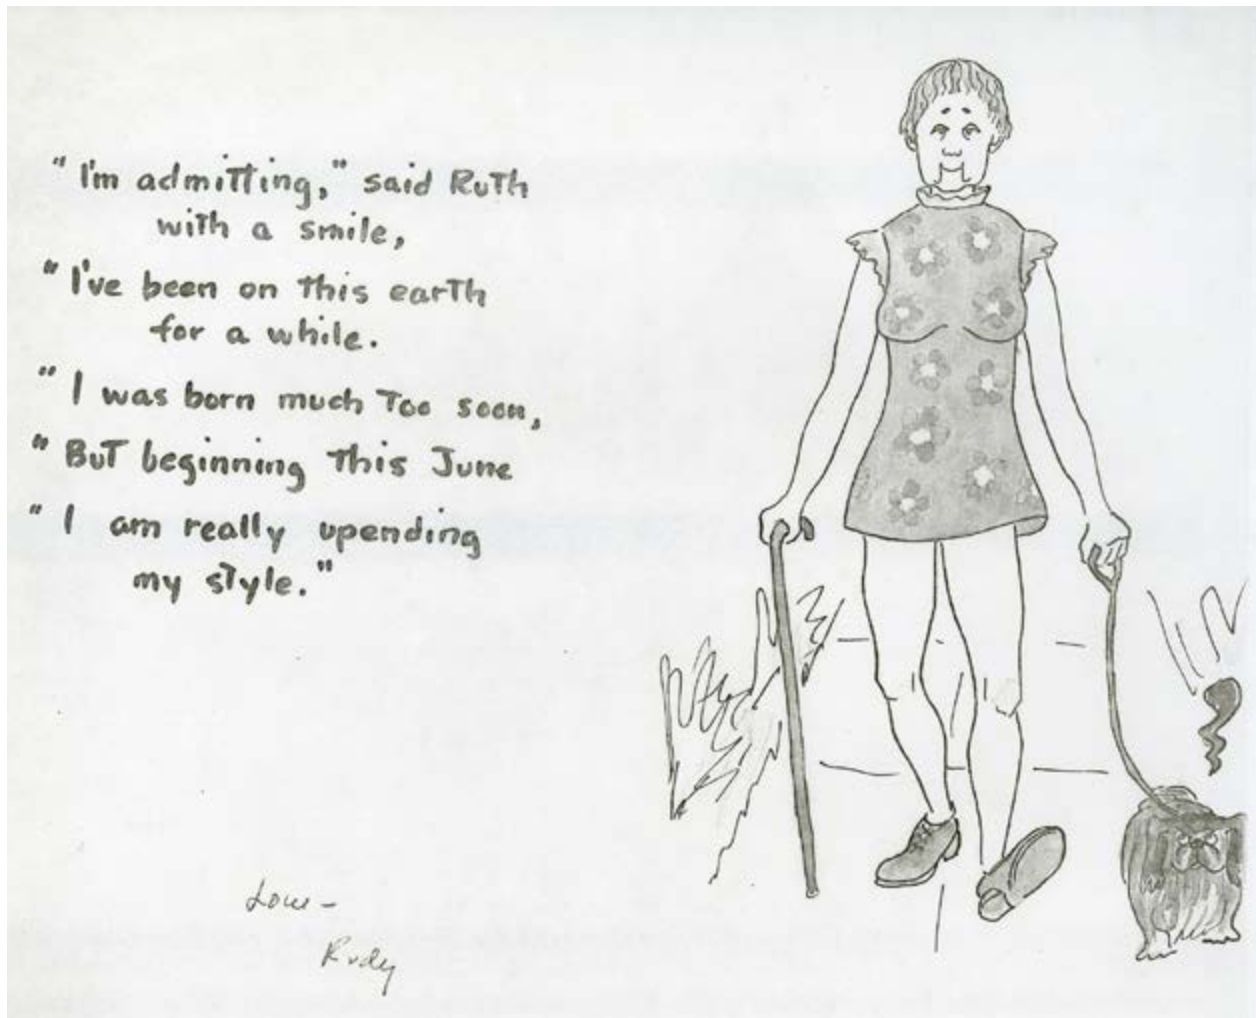 " I'm admitting," said Ruth
with a smile,
" I've been on this earth
for a while.
" I was born much too soon,
" But beginning this June
" I am really upending
my style."
Love -
Rudy